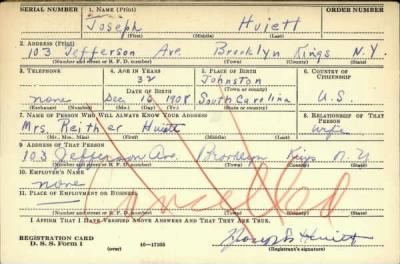 SERIAL NUMBER 1. NAME (Print) ORDER NUMBER
Joseph Huiett
(First) (Middle) (Last)
2. ADDRESS (Print)
103 Jefferson Ave. Brooklyn Kings N.Y.
(Number and street or R. F. D. number) (Town) (County) (State)
3. TELEPHONE 4. AGE IN YEARS 5. PLACE OF BIRTH 6. COUNTRY OF CITIZENSHIP
32 Johnston
DATE OF BIRTH (Town or county)
none Dec 10 1908 South Carolina U.S.
(Exchange) (Number) (Mo.) (Day) (Yr.) (State or country)
7. NAME OF PERSON WHO WILL ALWAYS KNOW YOUR ADDRESS 8. RELATIONSHIP OF THAT PERSON
Mrs. Reither Huiett Wife
(Mr., Mrs., Miss) (First) (Middle) (Last)
9. ADDRESS OF THAT PERSON
103 Jefferson Ave. Brooklyn Kings N.Y
(Number and street or R. F. D. number) (Town) (County) (State)
10. EMPLOYER'S NAME
none
11. PLACE OF EMPLOYMENT OR BUSINESS
Cancelled
(Number and street or R. F. D. number) (Town) (County) (State)
I AFFIRM THAT I HAVE VERIFIED ABOVE ANSWERS AND THAT THEY ARE TRUE.
REGISTRATION CARD
D. S. S. Form 1 (over) 16—17105 Joseph Huiett
(Registrant's signature)